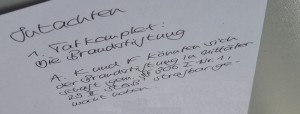 Gutachten
1. Tatkomplex:
Die Brandstiftung
A. K und F könnten sich
der Brandstiftung in Mittäter-
schaft gem. §§ 306 I Nr. 1,
25 II StGB strafbar ge-
macht haben.